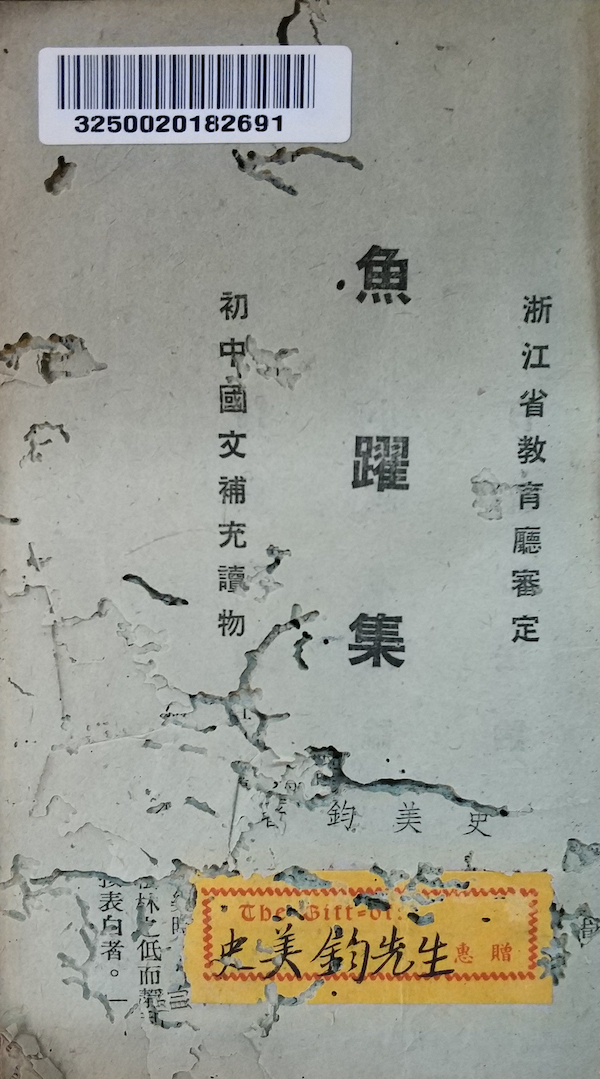 3250020182691
浙江省教育廳審定
魚躍集
初中國文補充讀物
史美鈞
The Gift of:
史美鈞先生 惠贈
林之低而
表白者。一